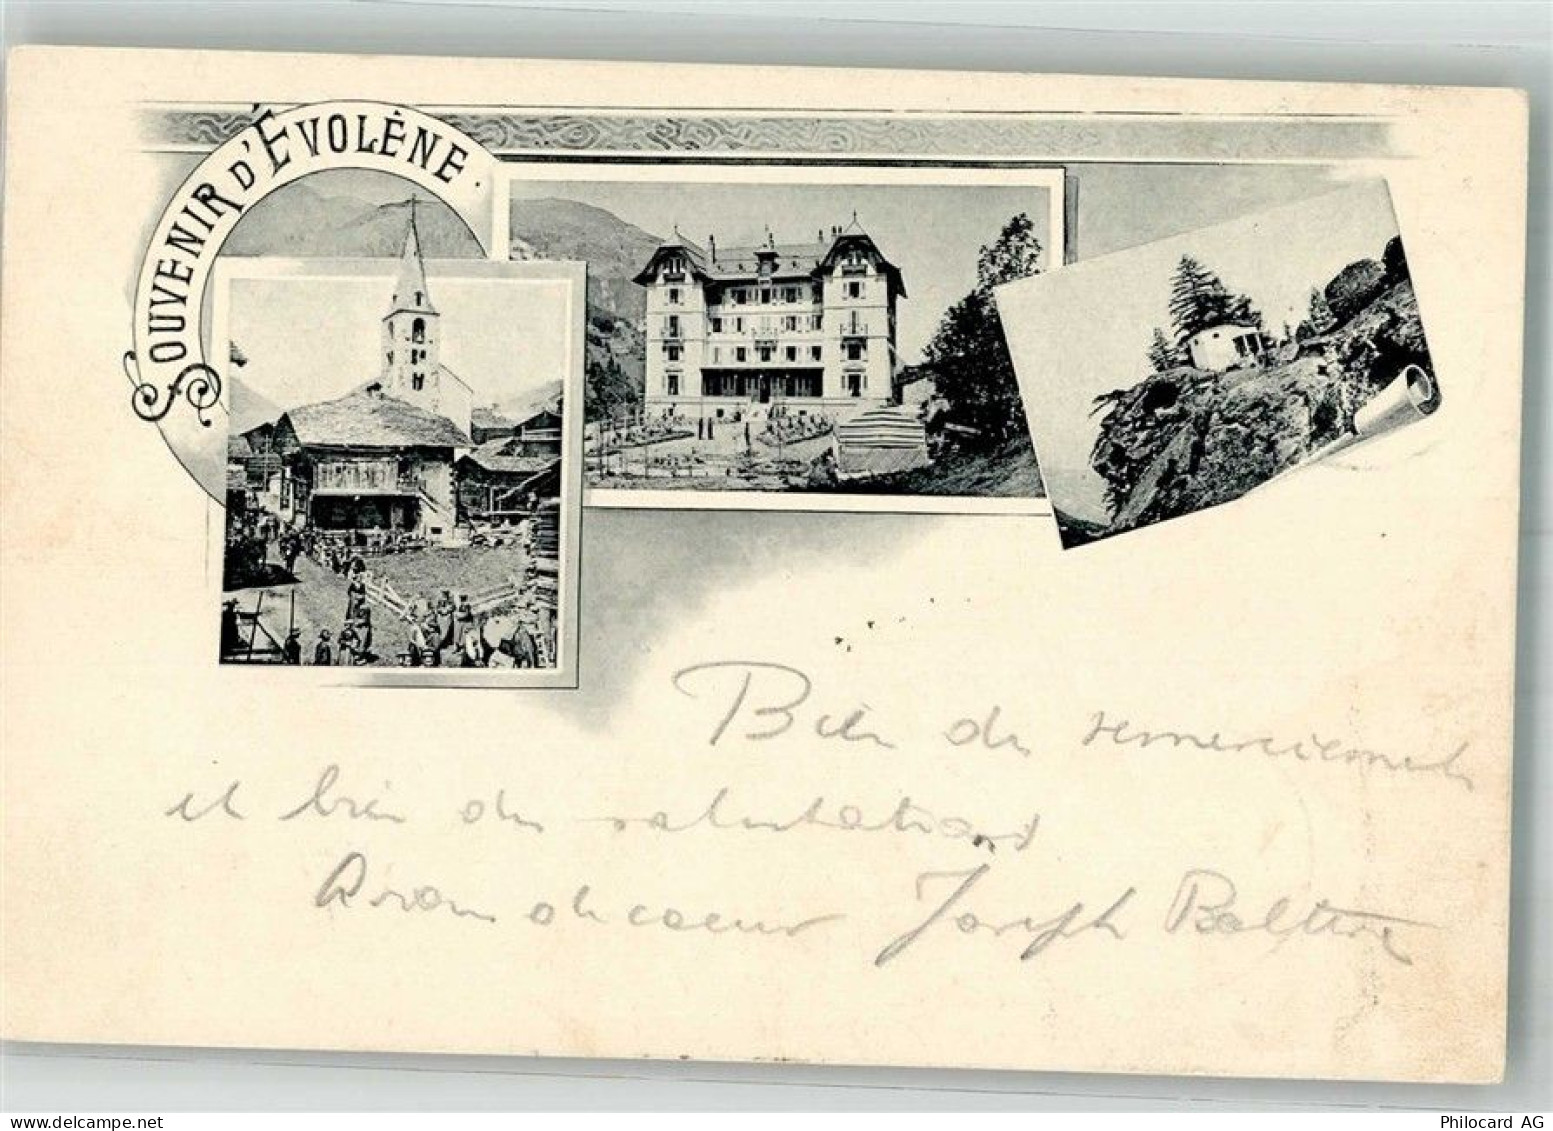 SOUVENIR D'ÉVOLÈNE.
Bien des remerciements
et bien des salutations
de coeur Joseph
www.delcampe.net
Philocard AG